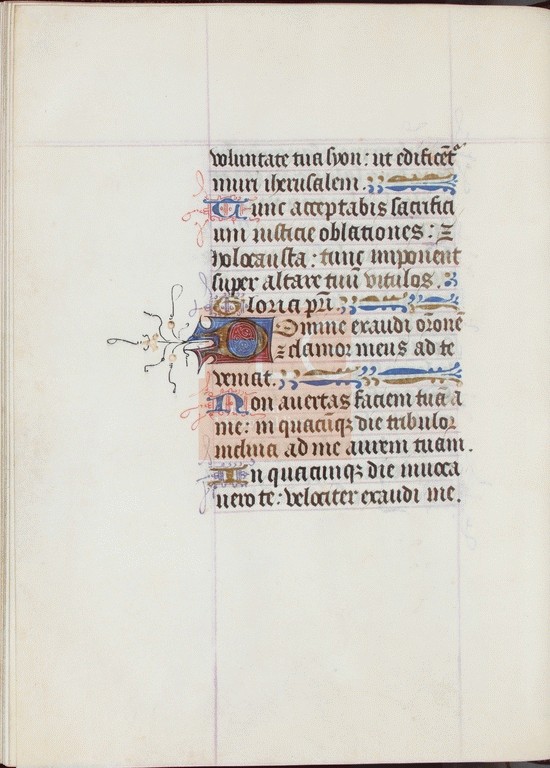 voluntate tua syon: ut edificēt᷑
muri iherusalem.
Tunc acceptabis sacrifici
um iusticie oblationes: ⁊
holocausta: tunc imponent
super altare tuū vitulos.
Gloria pr̄i.
Domine exaudi or̄onē
⁊ clamor meus ad te
veniat.
Non auertas faciem tuā a
me: in quacūqꝫ die tribulor
inclina ad me aurem tuam.
In quacunqꝫ die inuoca
uero te: velociter exaudi me.